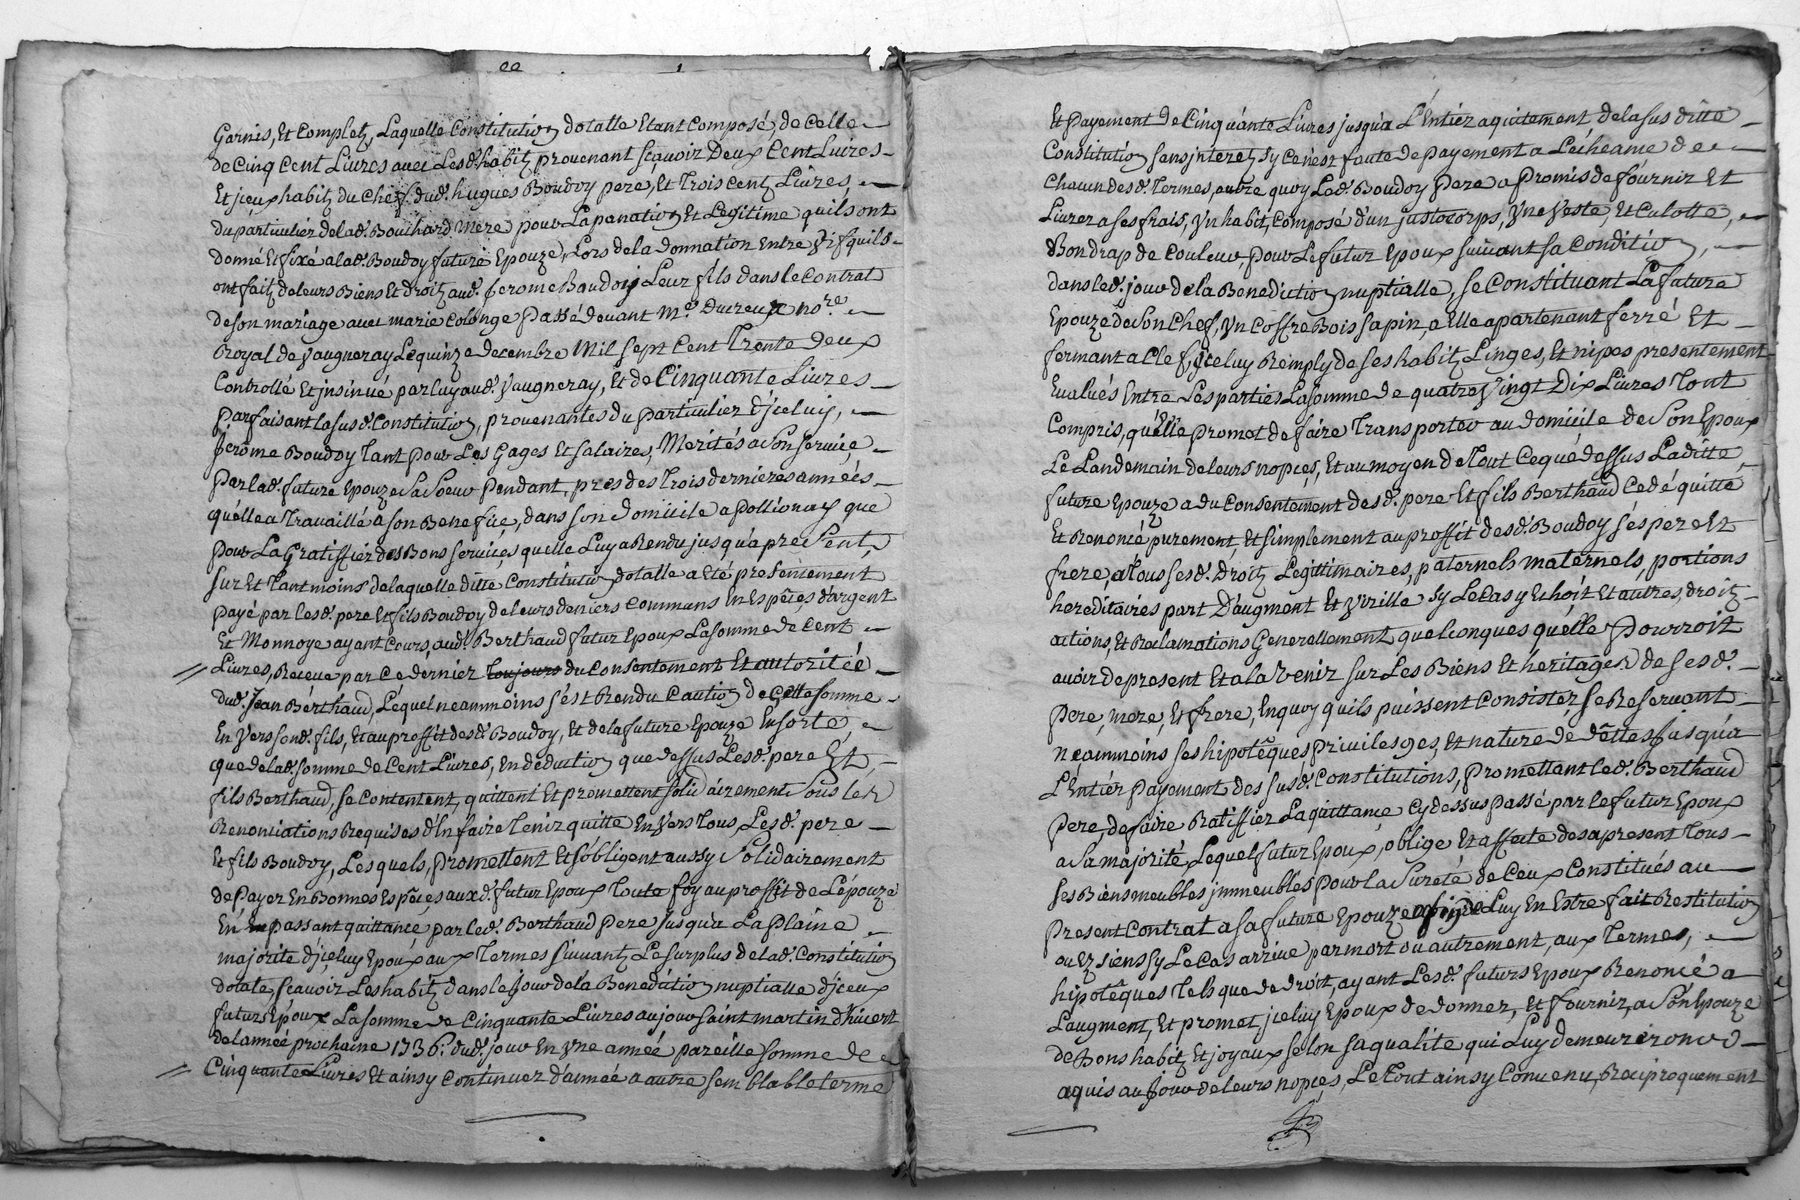 Garnis, Et Complets, Laquelle Constitution dotalle Etant Composé, de Celle
de Cinq Cent Livres avec Lesd. habits provenant sçavoir Deux Cent Livres
Et jceux habits du Chef dud. hugues Boudoy pere, Et Trois Cents Livres,
Du particulier de lad. Bouchard Mere pour La panation Et Legitime quils ont
donné Et fixé a lad. Boudoy future Epouze, Lors de la donnation Entre Vifs quils
ont faits de leurs Biens Et droits aud. Jerome Baudoy Leur fils dans le Contrat
de son mariage avec marie Colonge Passé devant Me. Ducreux nore.
Royal de Vaugneray Le quinze decembre Mil sept Cent Trente deux
Controllé Et jnsinué par luy aud. Vaugneray, Et de Cinquante Livres
parfaisant la sus d. Constitution, provenantes du particulier d'jceluy,
Jerome Boudoy Tant pour Les Gages Et salaires, Merités a Son Service
Par lad. future Epouze Sa Soeur Pendant, pres des Trois dernieres années
qu'elle a Travaillé a son Benefice, dans son domicile a Pollionay que
pour La Gratiffier des Bons services quelle Luy a Rendu jusqu'a present,
sur Et Tant moins de laquelle ditte Constitution dotalle a Eté presentement
payé par lesd. pere Et fils Boudoy de leurs deniers communs En Espêces d'argent
Et Monnoye ayant Cours, aud. Berthaud futur Epoux La somme de Cent
Livres, Receue par Ce dernier Toujours du Consentement Et autoritée
dud. Jean Berthaud, Lequel neammoins s'ést Rendu Caution de Cette somme
En Vers sond. fils, Et au proffit desd. Boudoy, Et de la future Epouze En sorte,
que de lad. somme de Cent Livres, En deduction que dessus Lesd. pere Et,
fils Berthaud, se Contentent, quittent Et promettent solidairement Sous les
Renonciations Requises d'En faire Tenir quitte En Vers Tous Lesd. pere
Et fils Boudoy, Lesquels, promettent Et s'obligent aussy Solidairement
de Payer En Bonnes Espêces aux d. futur Epoux Toute foy au proffit de L'épouze
En En passant quittance par led. Berthaud Pere Jusqu'a La Plaine
majorité d'jceluy Epoux aux Termes suivants Le surplus de lad. Constitution
dotale, sçavoir Les habits dans le Jour de la Benediction nuptialle d'jceux
futurs Epoux La somme de Cinquante Livres au jour saint martin d'hivert
de lannée prochaine 1736: dud. jour En Vne année pareille somme de
Cinquante Livres Et ainsy Continuer d'année a autre semblable terme
Et Payement de Cinquante Livres jusqu'a L'Entier aquitement de la sus ditte
Constitution sans jnterets sy Ce n'est faute de Payement a L'écheance de
Chacun desd. Termes, outre quoy Led. Boudoy Pere a Promis de fournir Et
Livrer a ses frais, Vn habit, Composé d'un justocorps, Vne Veste, Et Culotte,
Bon drap de Couleur, pour Le futur Epoux suivant sa Condition,
dans led. jour de la Benediction nuptialle, se Constituant La future
Epouze de Son Chef, Vn Coffre Bois sapin, a Elle apartenant ferré Et
fermant a Clef, jceluy Remply de ses habits Linges, Et nipes presentement
Evalués Entre Les parties La somme de quatre Vingt Dix Livres Tout
Compris, qu'elle promet de faire Transporter au domicile de Son Epoux
Le Landemain de leurs nopces, Et au moyen de Tout Ce que dessus Laditte
future Epouze a du Consentement desd. pere Et fils Berthaud Cedé quitté
Et Renoncé purement Et simplement au proffit desd. Boudoy sés pere Et
frere, a Tous ses d. droits Legittimaires, paternels maternels, portions
hereditaires part D'augment Et Virille sy Le Cas y Echoit Et autres, droits
actions, Et Reclamations Generellement quelconques qu'elle Pourroit
avoir de present Et a la Venir sur Les Biens Et heritages de ses d.
Pere, mere, Et frere, En quoy quils puissent Consister se Reservant
neammoins ses hipotêques, Privileges, Et nature de dêttes Jusqu'a
L'Entier Payement des susd. Constitutions, Promettant led. Berthaud
Pere, de faire Ratiffier La quittance Cy dessus passé par le futur Epoux
a Sa majorité, Lequel futur Epoux, oblige Et affecte des a present Tous
ses Biens meubles jmmeubles pour la Sureté de Ceux Constitués au
Present Contrat a sa future Epouze afin de Luy En Estre fait Restitution
ou Ez siens sy Le Cas arrive par mort ou autrement, aux Termes,
hipotêques Tels que de droit, ayant Lesd. futurs Epoux Renoncé a
L'augment, Et promet, jceluy Epoux de donner, Et fournir, a Son Epouze
de Bons habits Et joyaux selon sa qualité qui Luy demeureront
aquis au Jour de leurs nopces, Le Tout ainsy Convenu, Reciproquement